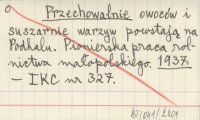 Przechowalnie owoców i
suszarnie warzyw powstają na
Podhalu. Pionierska praca rol-
nictwa małopolskiego. 1937.
— IKC nr 327.